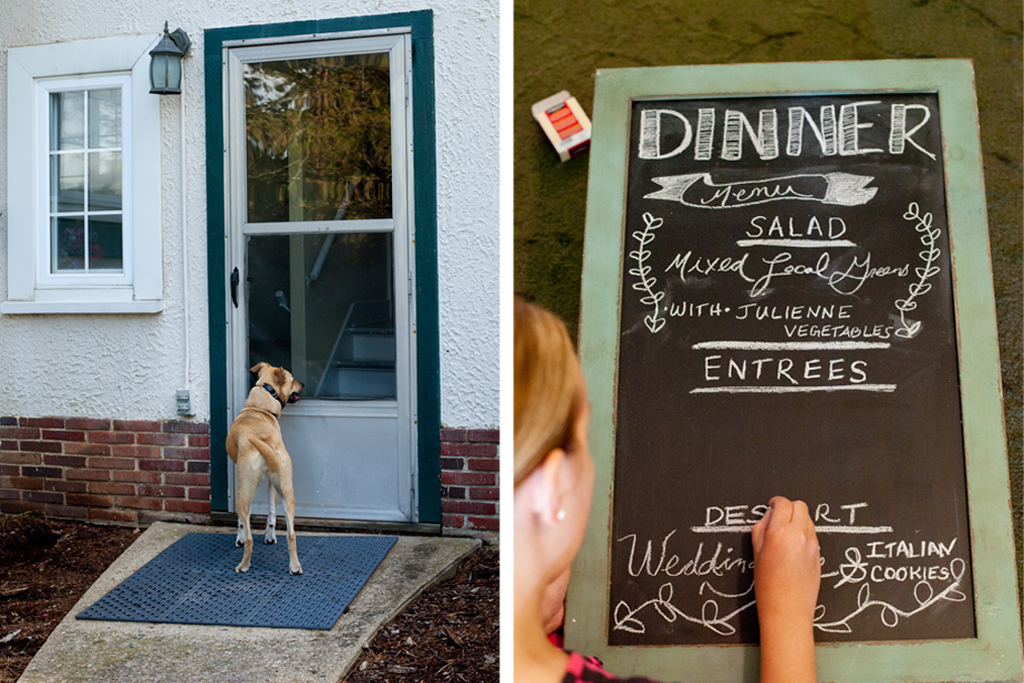 DINNER
Menu
SALAD
Mixed Local Greens
·WITH· JULIENNE
VEGETABLES
ENTREES
DES RT
Wedding
& ITALIAN
COOKIES